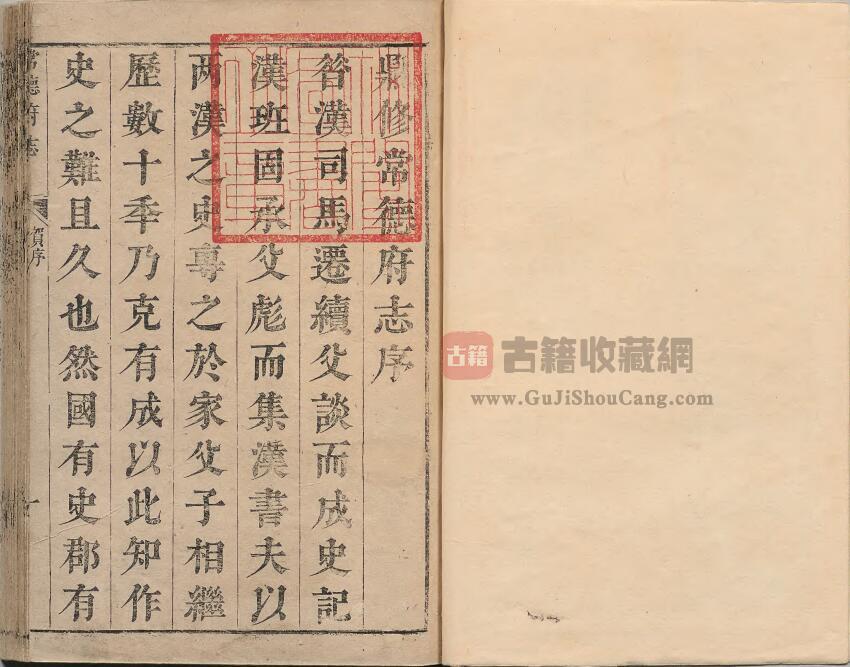 鼎修常德府志序
昔漢司馬遷續父談而成史記
漢班固承父彪而集漢書夫以
两漢之史專之於家父子相繼
歷數十秊乃克有成以此知作
史之難且久也然國有史郡有
常德府志 賀序 一
古籍
古籍收藏網
www.GuJiShouCang.com